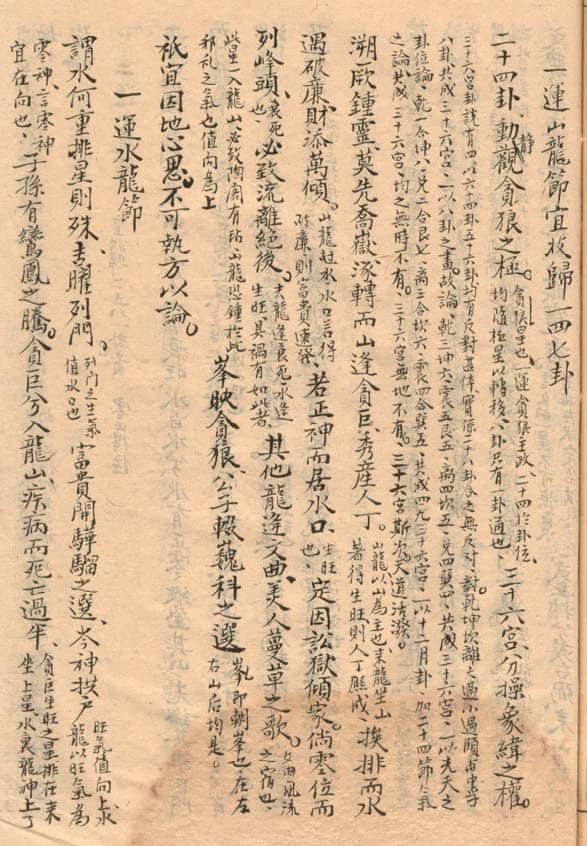 一運山龍節宜收歸一四七卦
二十四卦、動靜觀貪狼之極。貪狼星也、一運貪狼主政、二十四於卦位、均隨極星以轉移八卦只有一卦通也、三十六宮、分操象緯之權。
三十六宮卦說有四以六十四卦五十六卦均有反對甚体實係二十八卦合之無反对、對乾坤坎離大過小過頤中孚
八卦共成三十六宮、一以八卦之畫。故論、乾三坤六、震五艮五、离四坎五、兌四巽四、共成三十六宮、一以先天之
卦位論、乾一合坤八、兌二合艮七、离三合坎六、震四合巽五、共成四九三十六宮、一以十二月卦、加二十四節气
之論共成三十六宮、均之無時不有。三十六宮無地不有。三十六宮斯次天道活潑。
溯厥鍾靈、莫先喬嶽、涿轉而山逢貪巨、秀産人丁。山龍以山為主也来龍坐山著得生旺則人丁熾盛、挨排而水
遇破廉財添萬傾。山龍赴水、水口若得破廉則富貴速發若正神而居水口、生旺也、定因訟獄傾家、倘零位而
列峰頭、衰死也、必致流離絕後。夫龍逢衰死水逢生旺、具禍有如此者、其他龍逢文曲、美人蔓草之歌。文曲風流之宿也、
此星一入龍山必致陶閣有玷山龍恐鍾於此邪乱之气也值向為上峯映貪狼、公子輟巍科之選峯即朝峯也在左右山后均是。
祇宜因地心思。不可執方以論。
一運水龍節
謂水何重排星則殊、去曜列門、列門之生氣值水口也富貴開騨騮之選、岑神拱户旺氣值向上水龍以旺氣為
零神、言零神宜在向也、子孫有鸞鳳之騰。貪巨兮入龍山、疾病而死亡過半、貪巨生旺之星排在来坐上星水裏龍神上了